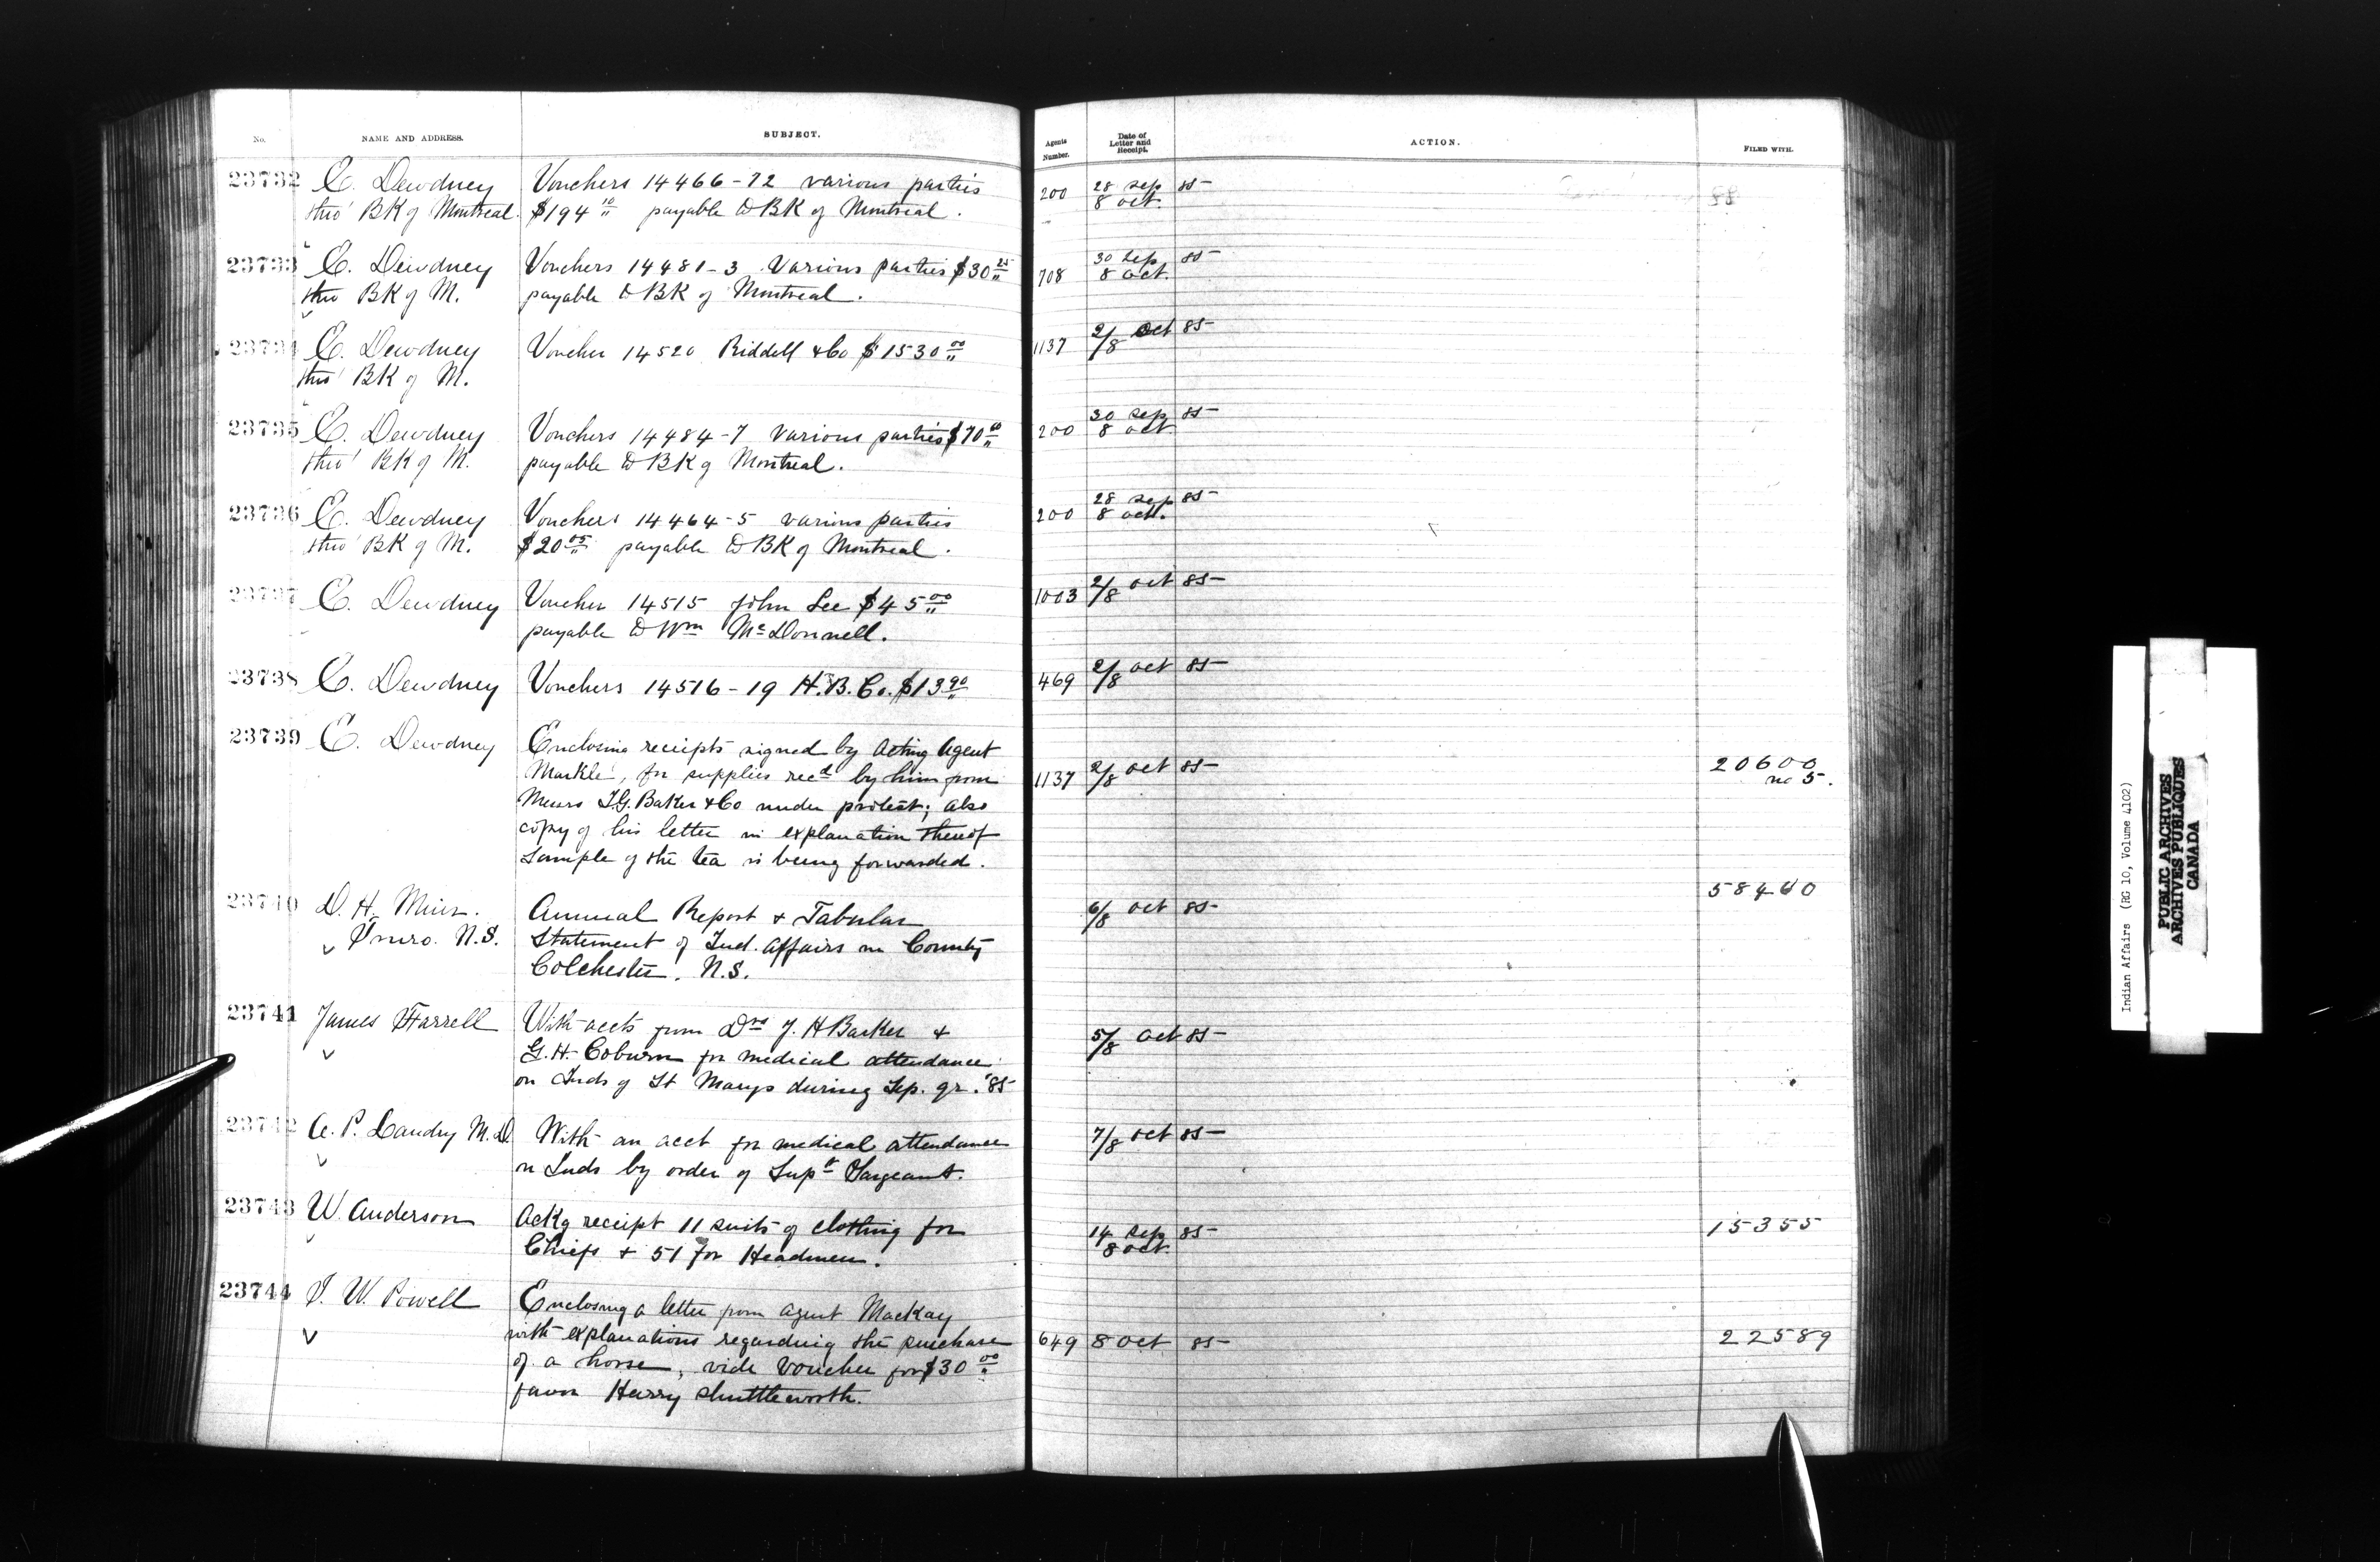 No. NAME AND ADDRESS. SUBJECT. Agents Number. Date of Letter and Receipt. ACTION. FILED WITH.
23732 E. Dewdney Vouchers 14466-72 various parties 200 28 Sep 85
thro' BK of Montreal. $194 10/" payable to BK of Montreal. 8 oct.
23733 E. Dewdney Vouchers 14481-3 Various parties $30 25/" 708 30 Sep 85
thro BK of M. payable to BK of Montreal. 8 oct.
23734 E. Dewdney Voucher 14520 Riddell & Co $1530 00/" 1137 2/8 Oct 85
thro' BK of M.
23735 E. Dewdney Vouchers 14484-7 various parties $70 00/" 200 30 Sep 85
thro' BK of M. payable to BK of Montreal. 8 oct.
23736 E. Dewdney Vouchers 14464-5 various parties 200 28 Sep 85
thro' BK of M. $20 05/" payable to BK of Montreal. 8 oct.
23737 E. Dewdney Voucher 14515 John Lee $45 00/" 1003 2/8 oct 85
payable to Wm McDonnell.
23738 E. Dewdney Vouchers 14516-19 H.B. Co. $13 90/" 469 2/8 oct 85
23739 E. Dewdney Enclosing receipts signed by Acting Agent
Markle, for supplies recd by him from 1137 2/8 oct 85 20600
no 5.
Messrs I.G. Baker & Co under protest; also
copy of his letter in explanation thereof
Sample of the tea is being forwarded.
58460
23740 D. H. Muir. Annual Report & Tabular 6/8 oct 85
Truro. N.S. Statement of Ind. Affairs in County
Colchester. N.S.
23741 James Farrell With accts from Drs J. H Barker & 5/8 Oct 85
G. H. Coburn for medical attendance
on Inds of St Marys during Sep. qr. '85
23742 A. P. Landry M.D. With an acct for medical attendance 7/8 oct 85
on Inds by order of Supt Sargeant.
23743 W. Anderson Ackg receipt 11 suits of clothing for 14 Sep 85 15355
Chiefs & 51 for Headmen. 8 oct.
23744 I. W. Powell Enclosing a letter from Agent Mackay
with explanations regarding the purchase 649 8 Oct 85 22589
of a horse, vide voucher for $30 00/"
favor Harry Shuttleworth.
Indian Affairs (RG 10, Volume 4102)
PUBLIC ARCHIVES
ARCHIVES PUBLIQUES
CANADA